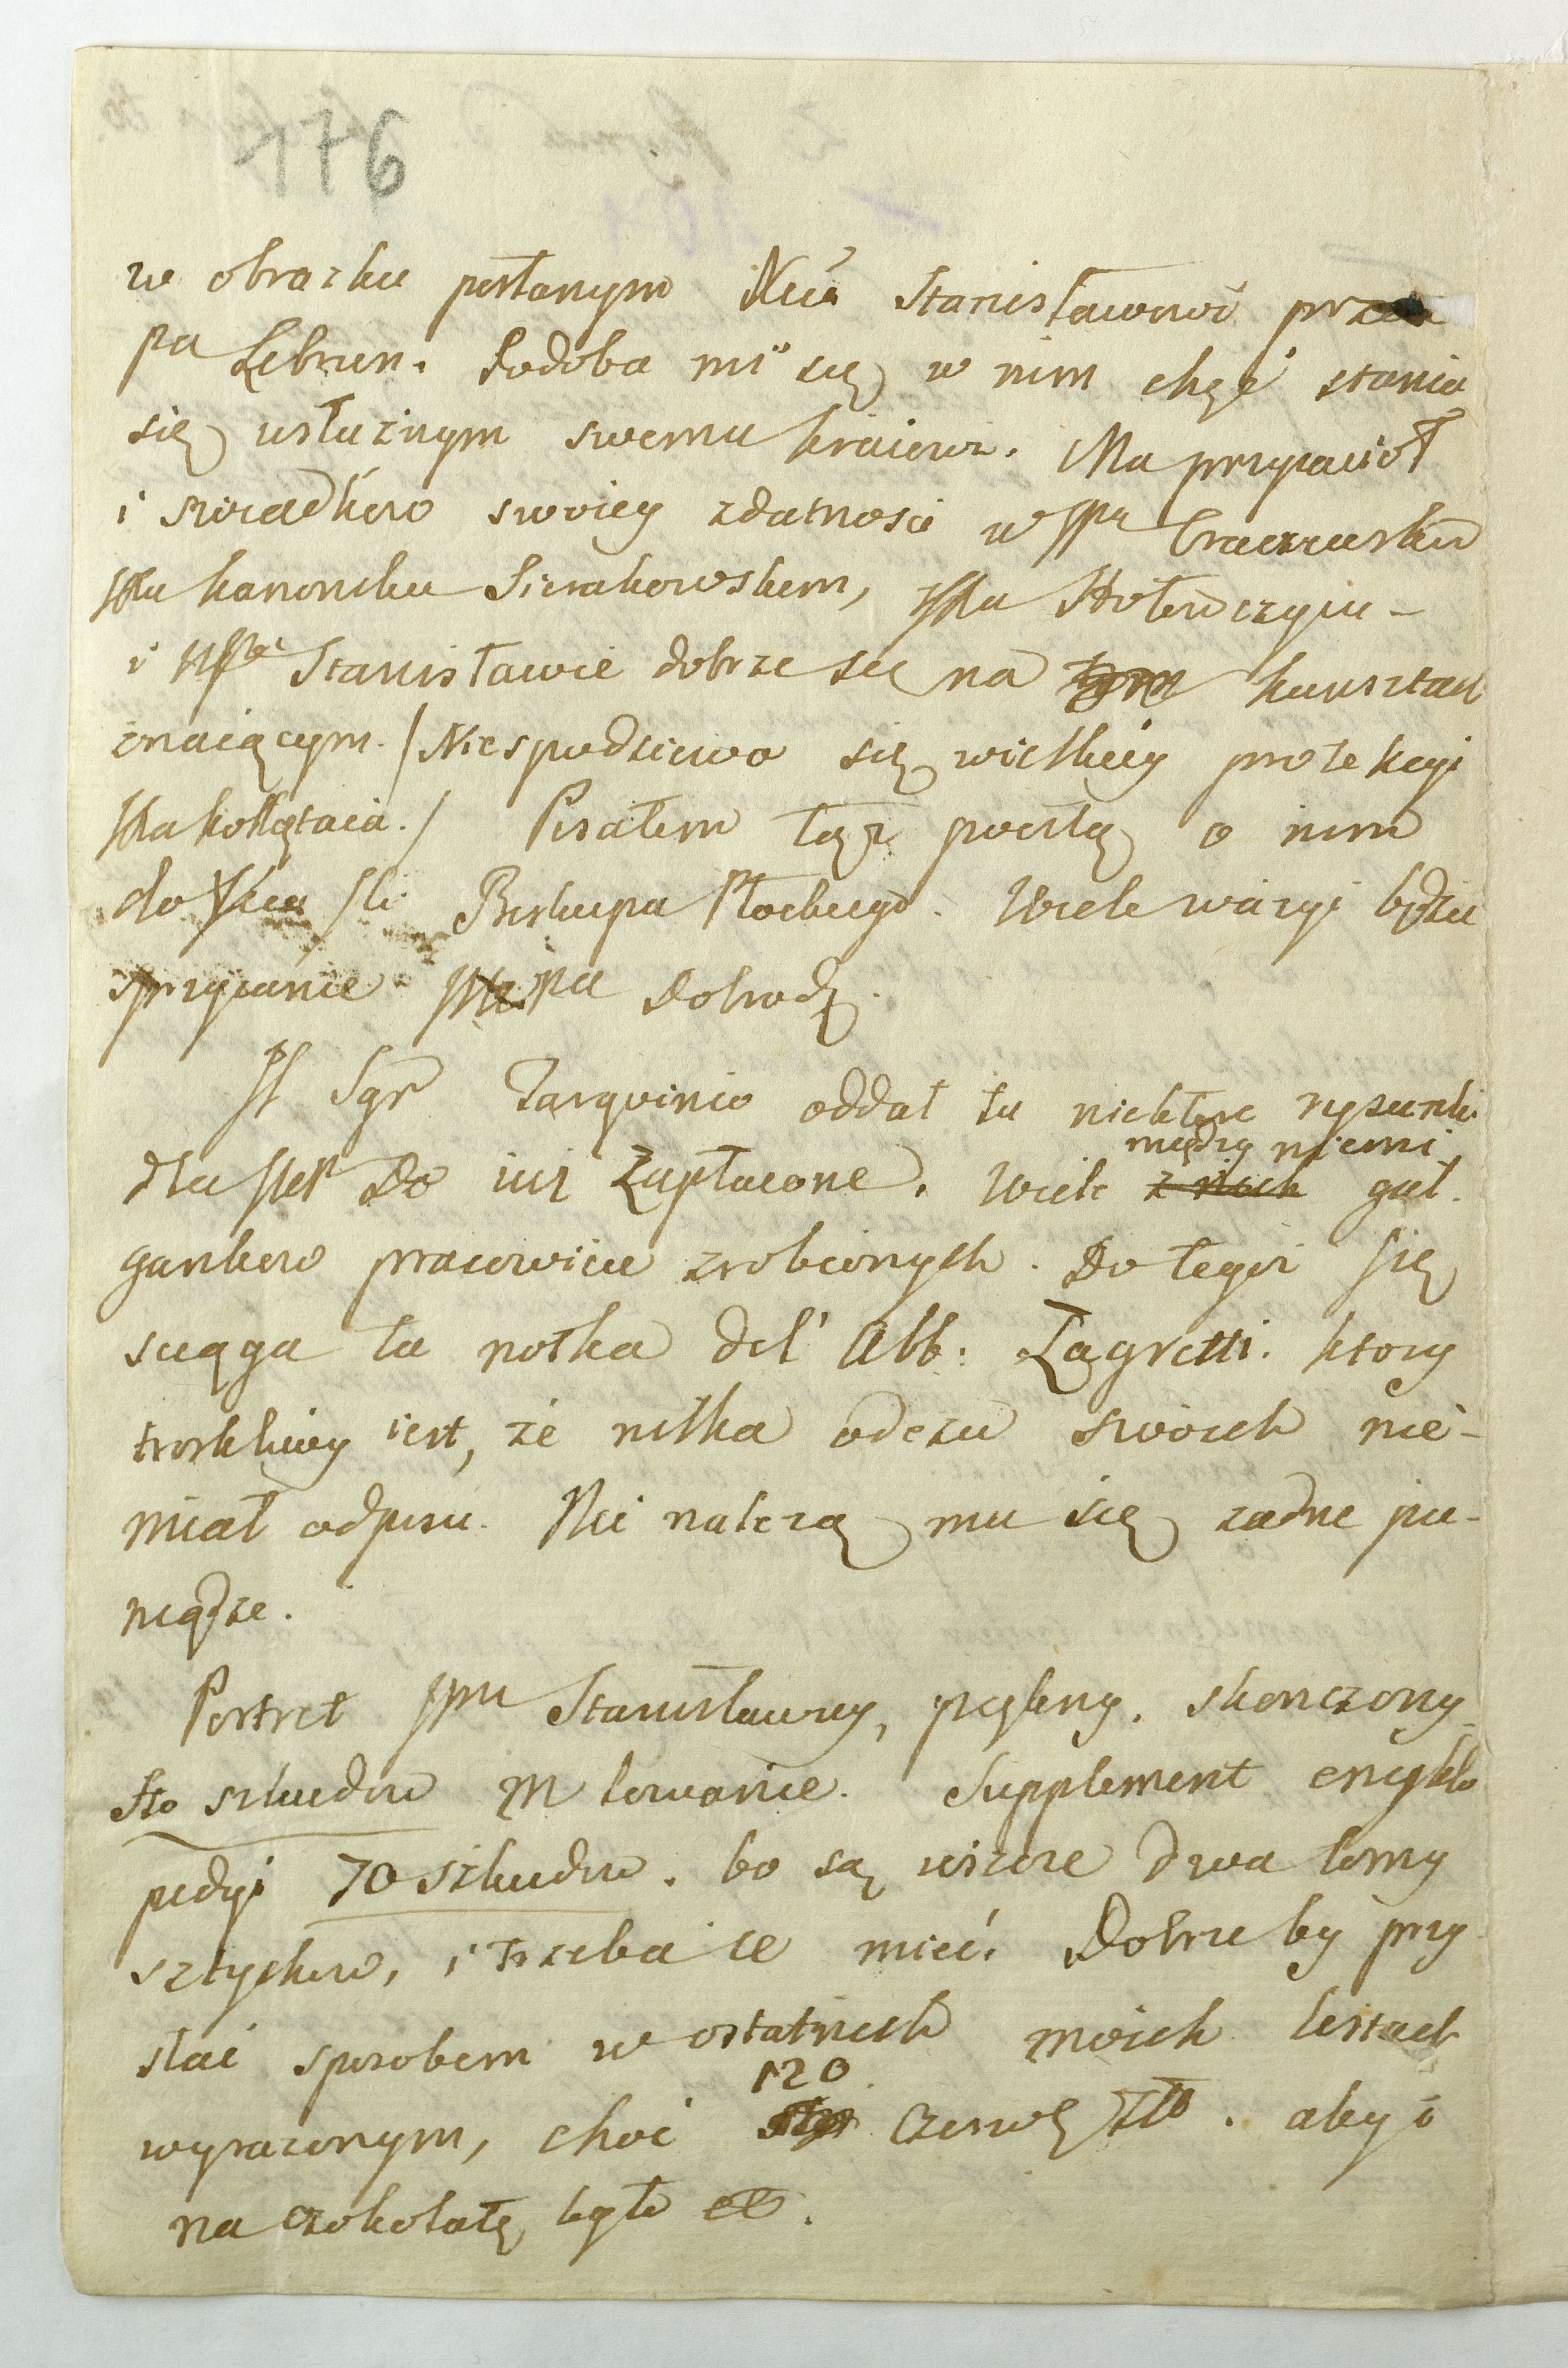 176
w obrazku posłanym Xciu Stanisławowi przez
pa Lebrun. Podoba mi się w nim chęć stania
się usłużnym swemu kraiowi. Ma przyiaciół
i swiadków swoiey zdatnosci w JPu Craczewskim
JXu kanoniku Sierakowskim, JPu Hołowczyiu -
i Stanisławie dobrze się na kunsztach
znaiącym. /Niespodziewa się wielkiey protekcyi
JXa kołłątaia./ Pisałem tąż pocztą o nim
do Xcia Jci Biskupa Płockiego. Wiele ważyć będzie
sprzyianie pa Dobrodz.
Jl Sgr Tarquinio oddał tu niektore rysunki
dla Do iuż zapłacone. Wiele z nich między niemi gał-
gankow pracowicie zrobionych. Do tegoż się
sciąga ta notka del' Abb. Zagretti. ktory
troskliwy iest, że nilka odezw swoich nie-
miał odpisu. Nie należą mu się żadne pie-
niądze.
Portret JPni Stanisławey, piękny. skonczony
sto szkudow malowanie. Supplement encyklo
pedyi 70 szkudow. bo są ieszcze dwa tomy
sztychow, i trzeba ie mieć. Dobrze by przy
słać sposobem w ostatnich moich listach
wyrazonym, choć 120 Czerw Złło. aby i
na czokolatę było.